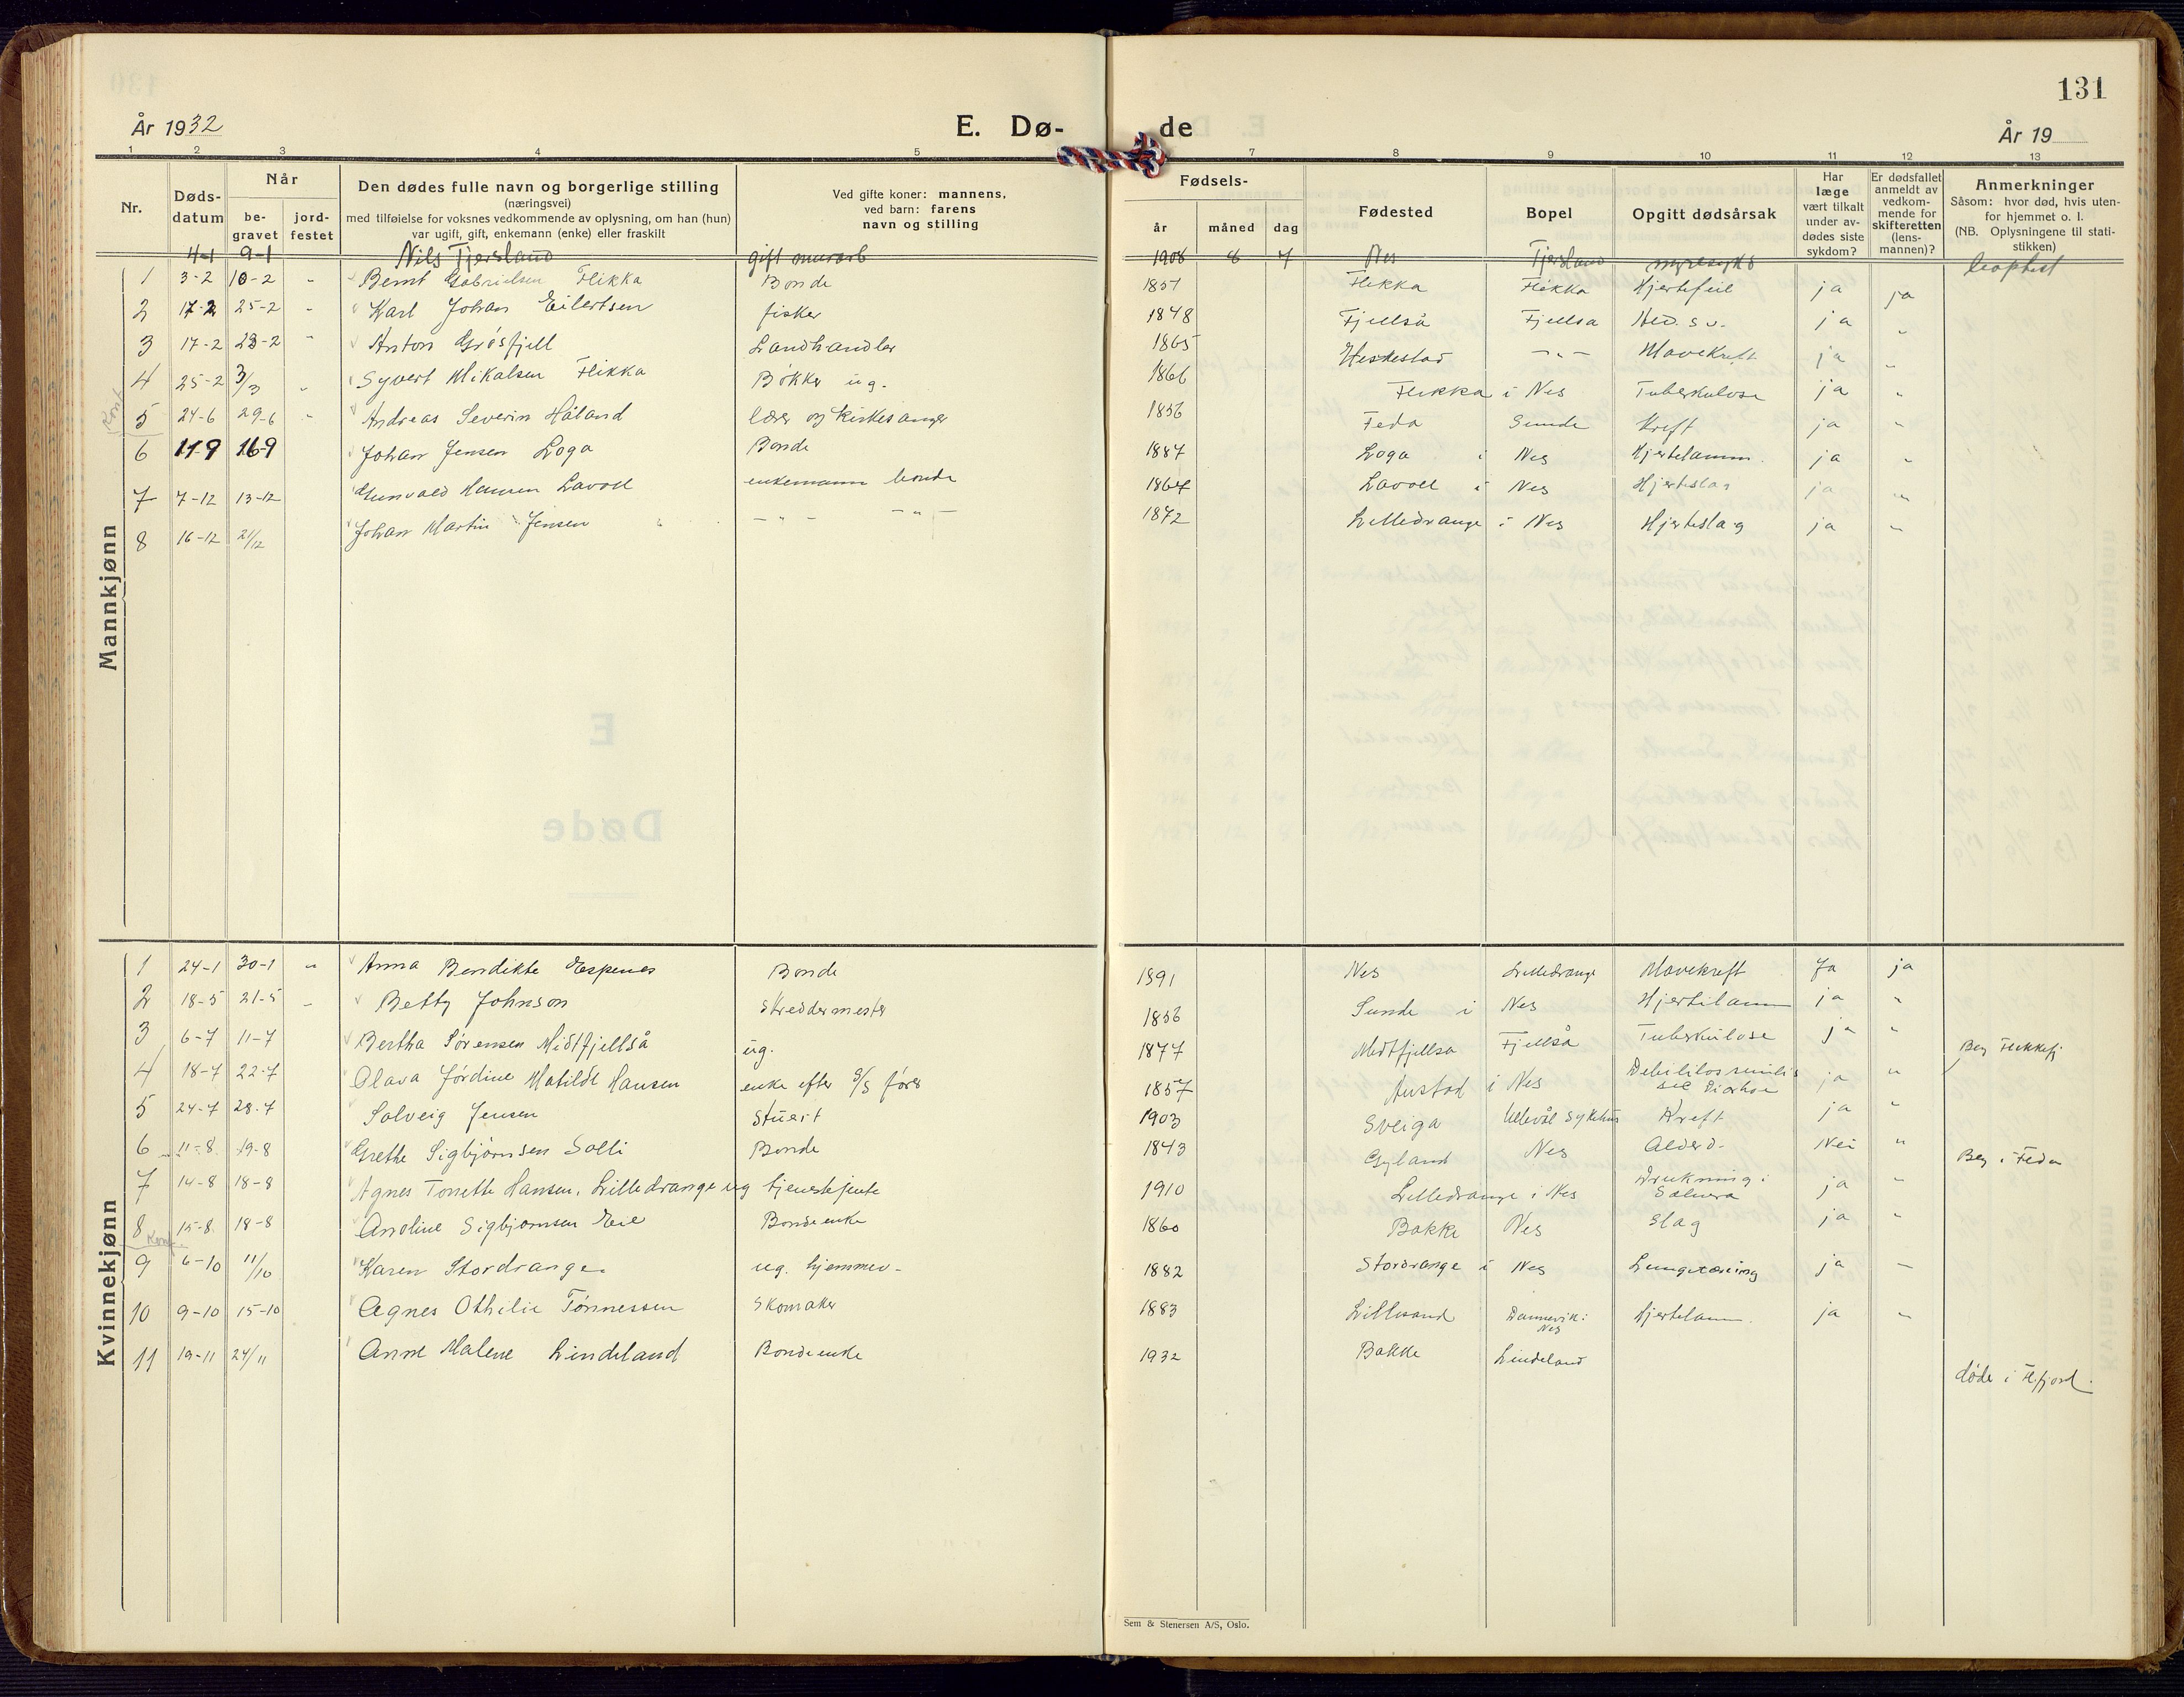 131
År 1932 E. Dø- de År 19
1 2 3 4 5 7 8 9 10 11 12 13
Nr. Døds-datum Når be-gravet jord-festet Den dødes fulle navn og borgerlige stilling (næringsvei) med tilføielse for voksnes vedkommende av oplysning, om han (hun) var ugift, gift, enkemann (enke) eller fraskilt Ved gifte koner: mannens, ved barn: farens navn og stilling Fødsels- år måned dag Fødested Bopel Opgitt dødsårsak Har læge vært tilkalt under av-dødes siste sykdom? Er dødsfallet anmeldt av vedkom-mende for skifteretten (lens-mannen)? Anmerkninger Såsom: hvor død, hvis uten-for hjemmet o. l. (NB. Oplysningene til stati-stikken)
4-1 9-1 Nils Tjersland gift murarb 1908 8 4 Nes Tjersland nyresyke
Mannkjønn
1 3-2 10-2 " Bernt Gabrielsen Flikka Bonde 1851 Flikka Flikka Hjertefeil ja ja
2 17-2 25-2 " Karl Johan Eilertsen fisker 1848 Fjellså Fjellså ja "
3 17-2 23-2 " Anton Grøsfjell Landhandler 1865 Heskestad -"- Mavekreft ja "
4 25-2 3/3 " Syvert Mikalsen Flikka Bøkker ug. 1866 Flikka i Nes Tuberkulose ja "
5 24-6 29-6 " Andreas Severin Håland lærer og kirkesanger 1856 Feda Sunde Kreft ja "
6 11-9 16-9 Johan Jensen Loga Bonde 1887 Loga i Nes Hjertelamm. ja "
7 7-12 13-12 Gunvald Hansen Lavoll enkemann bonde 1864 Lavoll i Nes Hjerteslag ja "
8 16-12 21/12 Johan Martin Jensen -"- -"- 1872 Lilledrange i Nes Hjerteslag ja "
Kvinnekjønn
1 24-1 30-1 " Anna Bendikte Espenes Bonde 1891 Nes Lilledrange Mavekreft Ja ja
2 18-5 21-5 " Betty Johnson Skreddermester 1856 Sunde i Nes Hjertelamm ja "
3 6-7 11-7 Bertha Sørensen Midtfjellså ug. 1877 Midtfjellså Fjellså Tuberkulose ja " Beg Flekkefj
4 18-7 22-7 Olava Jørdine Matilde Hansen enke efter S/S fører 1857 Austad i Nes Debilitas senilis ja "
5 24-7 28-7 Solveig Jensen Stuert 1903 Sveiga Ullevål Sykehus Kreft ja "
6 11-8 19-8 Grethe Sigbjørnsen Solli Bonde 1843 Gyland Nes Alderd. Nei " Beg i Feda
7 14-8 18-8 Agnes Tonette Hansen, Lilledrange ug tjenestejente 1910 Lilledrange i Nes Drukning i ja "
8 15-8 18-8 Anoline Sigbjørnsen Eie Bondeenke 1860 Bakke Nes Slag ja "
Konf.
9 6-10 11/10 Karen Stordrange ug. hjemmev- 1882 Stordrange i Nes Lungetæring ja "
10 9-10 15-10 Agnes Othilie Tønnessen Skomaker 1883 Lillesand Dannevik i Nes Hjertelam. ja "
11 19-11 24/11 Anne Malene Lindeland Bondeenke 1932 Bakke Lindeland døde i Fl.fjord.
Sem & Stenersen A/S, Oslo.